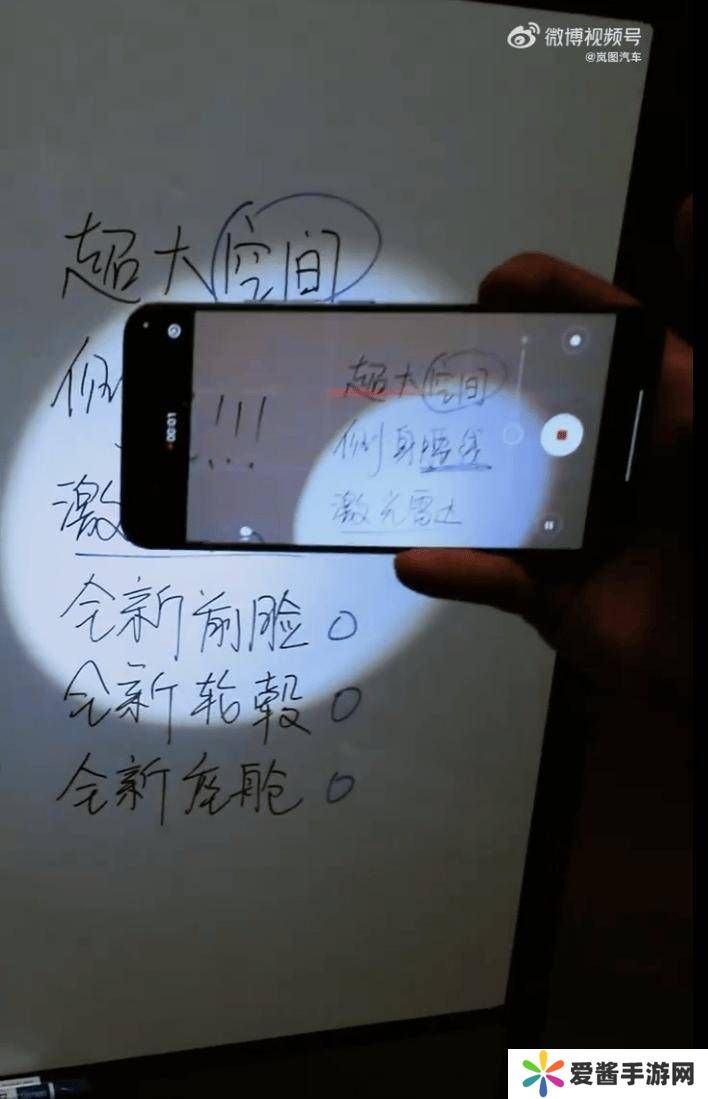 微博视频号
@岚图汽车
超大空间
侧
激
全新前脸0
全新轮毂0
全新座舱0
00:01
!!!
...
超大空间
侧身腰线
激光雷达
爱酱手游网